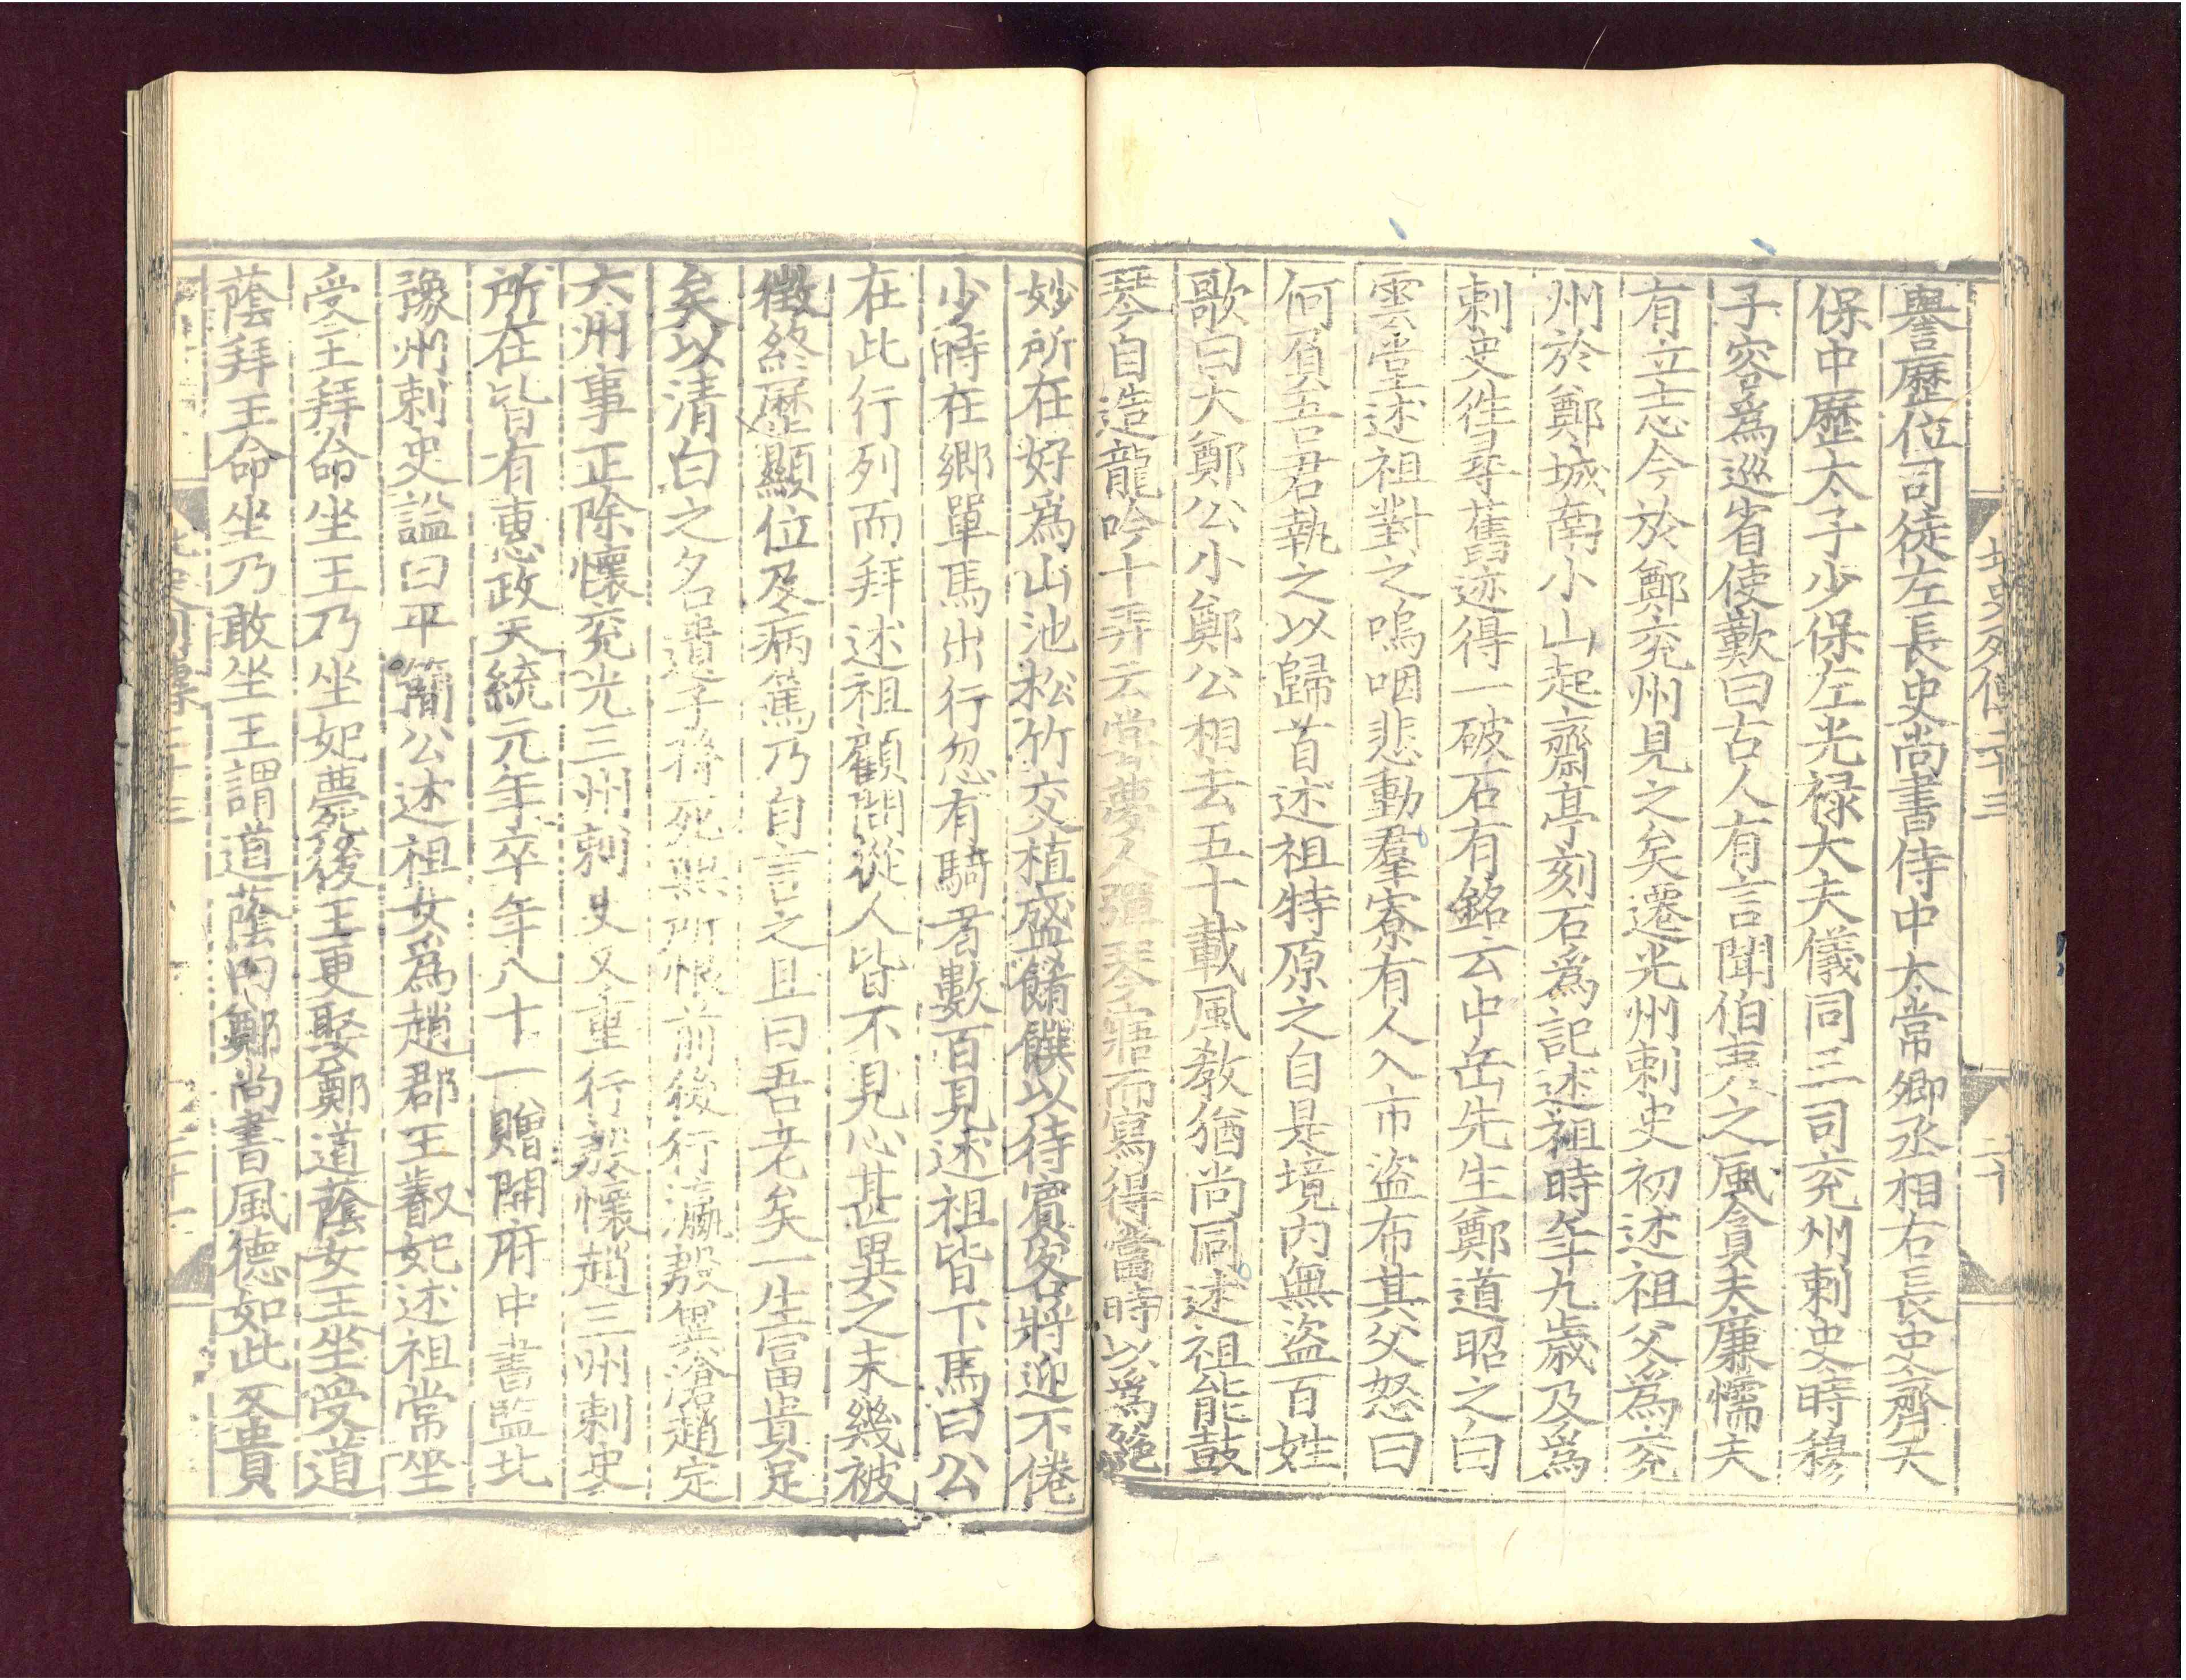 北史列傳二十三 二十
譽歷位司徒左長史尚書侍中太常卿丞相右長史齊天
保中歷太子少保左光禄大夫儀同三司兖州刺史時穆
子容爲巡省使歎曰古人有言聞伯夷之風貪夫廉懦夫
有立志今於鄭兖州見之矣遷光州刺史初述祖父爲兖
州於鄭城南小山起齋亭刻石爲記述祖時年九歲及爲
刺史徃尋舊迹得一破石有銘云中岳先生鄭道昭之白
雲堂述祖對之嗚咽悲動羣寮有人入市盜布其父怒曰
何負吾君執之以歸首述祖特原之自是境内無盜百姓
歌曰大鄭公小鄭公相去五十載風敎猶尚同述祖能鼓
琴自造龍吟十弄云嘗夢人彈琴寤而寫得當時以爲絶
妙所在好爲山池松竹交植盛餚饌以待賓客將迎不倦
少時在鄉單馬出行忽有騎者數百見述祖皆下馬曰公
在此行列而拜述祖顧問從人皆不見心甚異之未幾被
徵終歷顯位及病篤乃自言之且曰吾老矣一生富貴足
矣以清白之名遺子孫死無所恨前後行瀛殷冀滄趙定
六州事正除懷兖光三州刺史又重行殷懷趙三州刺史
所在皆有惠政天統元年卒年八十一贈開府中書監北
豫州刺史諡曰平簡公述祖女爲趙郡王叡妃述祖常坐
受王拜命坐王乃坐妃薨後王更娶鄭道蔭女王坐受道
蔭拜王命坐乃敢坐王謂道蔭曰鄭尚書風德如此又貴